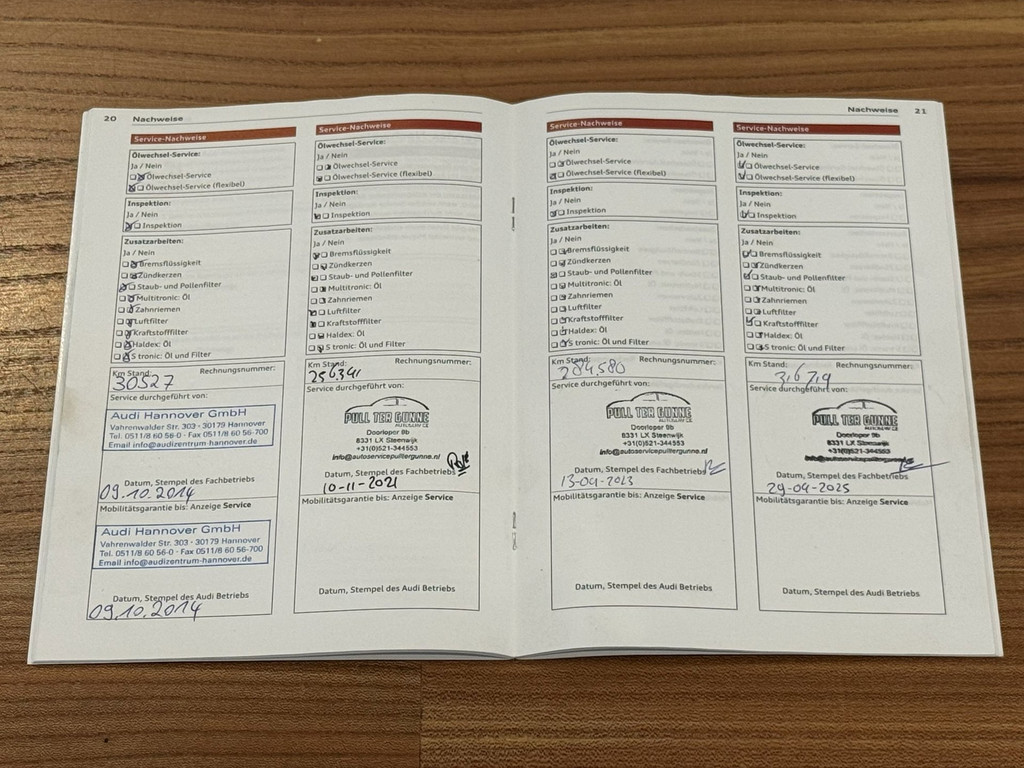 20 Nachweise
Service-Nachweise
Ölwechsel-Service:
Ja / Nein
Ölwechsel-Service
Ölwechsel-Service (flexibel)
Inspektion:
Ja / Nein
Inspektion
Zusatzarbeiten:
Ja / Nein
Bremsflüssigkeit
Zündkerzen
Staub- und Pollenfilter
Multitronic: Öl
Zahnriemen
Luftfilter
Kraftstofffilter
Haldex: Öl
S tronic: Öl und Filter
Km Stand: Rechnungsnummer:
30527
Service durchgeführt von:
Audi Hannover GmbH
Vahrenwalder Str. 303 - 30179 Hannover
Tel. 0511/8 60 56-0 - Fax 0511/8 60 56-700
Email info@audizentrum-hannover.de
Datum, Stempel des Fachbetriebs
09.10.2014
Mobilitätsgarantie bis: Anzeige Service
Audi Hannover GmbH
Vahrenwalder Str. 303 - 30179 Hannover
Tel. 0511/8 60 56-0 - Fax 0511/8 60 56-700
Email info@audizentrum-hannover.de
Datum, Stempel des Audi Betriebs
09.10.2014
Service-Nachweise
Ölwechsel-Service:
Ja / Nein
Ölwechsel-Service
Ölwechsel-Service (flexibel)
Inspektion:
Ja / Nein
Inspektion
Zusatzarbeiten:
Ja / Nein
Bremsflüssigkeit
Zündkerzen
Staub- und Pollenfilter
Multitronic: Öl
Zahnriemen
Luftfilter
Kraftstofffilter
Haldex: Öl
S tronic: Öl und Filter
Km Stand: Rechnungsnummer:
256341
Service durchgeführt von:
PULL TER GUNNE
AUTOSERVICE
Doorloper 9b
8331 LX Steenwijk
+31(0)521-344553
info@autoservicepulltergunne.nl
Datum, Stempel des Fachbetriebs
10-11-2021
Mobilitätsgarantie bis: Anzeige Service
Datum, Stempel des Audi Betriebs
Nachweise 21
Service-Nachweise
Ölwechsel-Service:
Ja / Nein
Ölwechsel-Service
Ölwechsel-Service (flexibel)
Inspektion:
Ja / Nein
Inspektion
Zusatzarbeiten:
Ja / Nein
Bremsflüssigkeit
Zündkerzen
Staub- und Pollenfilter
Multitronic: Öl
Zahnriemen
Luftfilter
Kraftstofffilter
Haldex: Öl
S tronic: Öl und Filter
Km Stand: Rechnungsnummer:
284580
Service durchgeführt von:
PULL TER GUNNE
AUTOSERVICE
Doorloper 9b
8331 LX Steenwijk
+31(0)521-344553
info@autoservicepulltergunne.nl
Datum, Stempel des Fachbetriebs
13-04-2023
Mobilitätsgarantie bis: Anzeige Service
Datum, Stempel des Audi Betriebs
Service-Nachweise
Ölwechsel-Service:
Ja / Nein
Ölwechsel-Service
Ölwechsel-Service (flexibel)
Inspektion:
Ja / Nein
Inspektion
Zusatzarbeiten:
Ja / Nein
Bremsflüssigkeit
Zündkerzen
Staub- und Pollenfilter
Multitronic: Öl
Zahnriemen
Luftfilter
Kraftstofffilter
Haldex: Öl
S tronic: Öl und Filter
Km Stand: Rechnungsnummer:
Service durchgeführt von:
PULL TER GUNNE
AUTOSERVICE
Doorloper 9b
8331 LX Steenwijk
+31(0)521-344553
Datum, Stempel des Fachbetriebs
29-04-2025
Mobilitätsgarantie bis: Anzeige Service
Datum, Stempel des Audi Betriebs